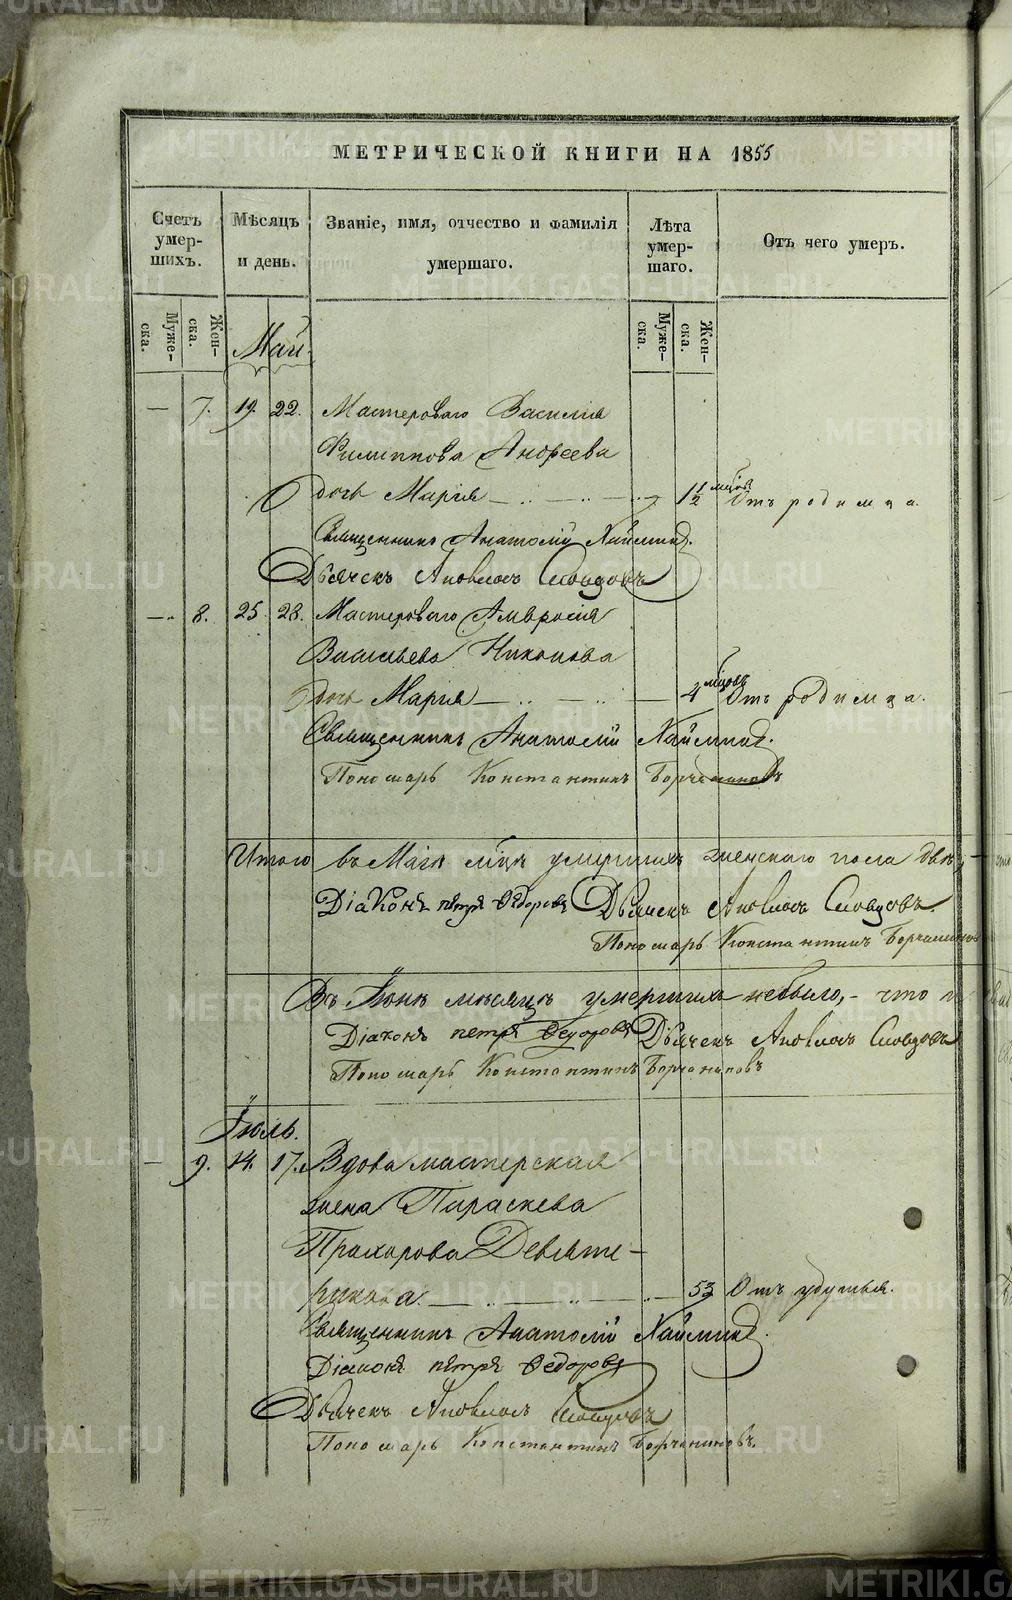 МЕТРИЧЕСКОЙ КНИГИ НА 1855
Счетъ умер-шихъ.
Мѣсяцъ и день.
Званіе, имя, отчество и фамилія умершаго.
Лѣта умер-шаго.
Отъ чего умеръ.
Муже-ска.
Жен-ска.
Муже-ска.
Жен-ска.
Май.
— 7. 19. 22. Мастероваго Василія
Филиппова Андреева
дочь Марія — 1½ мцов. Отъ родимца.
Священникъ Анатолій
Дьячекъ Аполлосъ Словцовъ
— 8. 25. 28. Мастероваго Амвросія
Васильева Никонова
дочь Марія — 4 мцовъ Отъ родимца.
Священникъ Анатолій
Пономарь Константинъ Борчаниновъ
Итого въ Маѣ мцѣ умершихъ женскаго пола двѣ, —
Діаконъ Петръ Ѳедоровъ Дьячекъ Аполлосъ Словцовъ.
Пономарь Константинъ Борчаниновъ
Въ Іюнѣ мѣсяцѣ умершихъ небыло, — что и
Діаконъ Петръ Ѳедоровъ Дьячекъ Аполлосъ Словцовъ
Пономарь Константинъ Борчаниновъ
Іюль.
— 9. 14. 17. Вдова мастерская
жена Параскева
Прохорова Девяте-
рикова. — 53 Отъ удушья.
Священникъ Анатолій
Діаконъ Петръ Ѳедоровъ
Дьячекъ Аполлосъ Словцовъ
Пономарь Константинъ Борчаниновъ.
METRIKI.GASO-URAL.RU